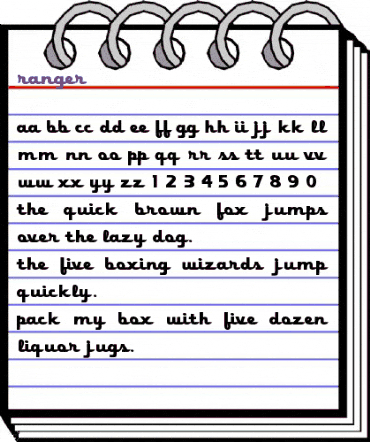 ranger
aa bb cc dd ee ff gg hh ii jj kk ll
mm nn oo pp qq rr ss tt uu vv
ww xx yy zz 1 2 3 4 5 6 7 8 9 0
the quick brown fox jumps
over the lazy dog.
the five boxing wizards jump
quickly.
pack my box with five dozen
liquor jugs.